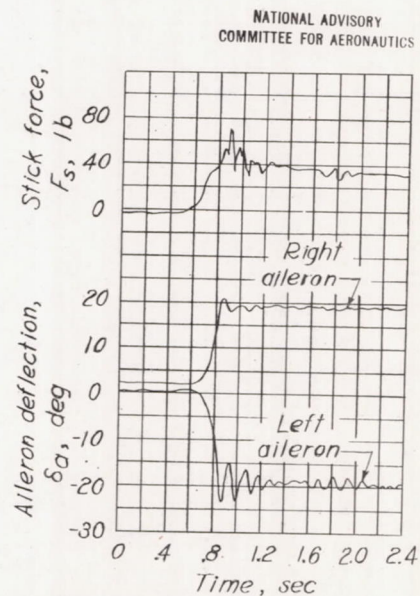 NATIONAL ADVISORY
COMMITTEE FOR AERONAUTICS
Stick force,
Fs, lb
80
40
0
Right
aileron
Aileron deflection,
δa, deg
20
10
0
-10
-20
-30
Left
aileron
0 .4 .8 1.2 1.6 2.0 2.4
Time, sec